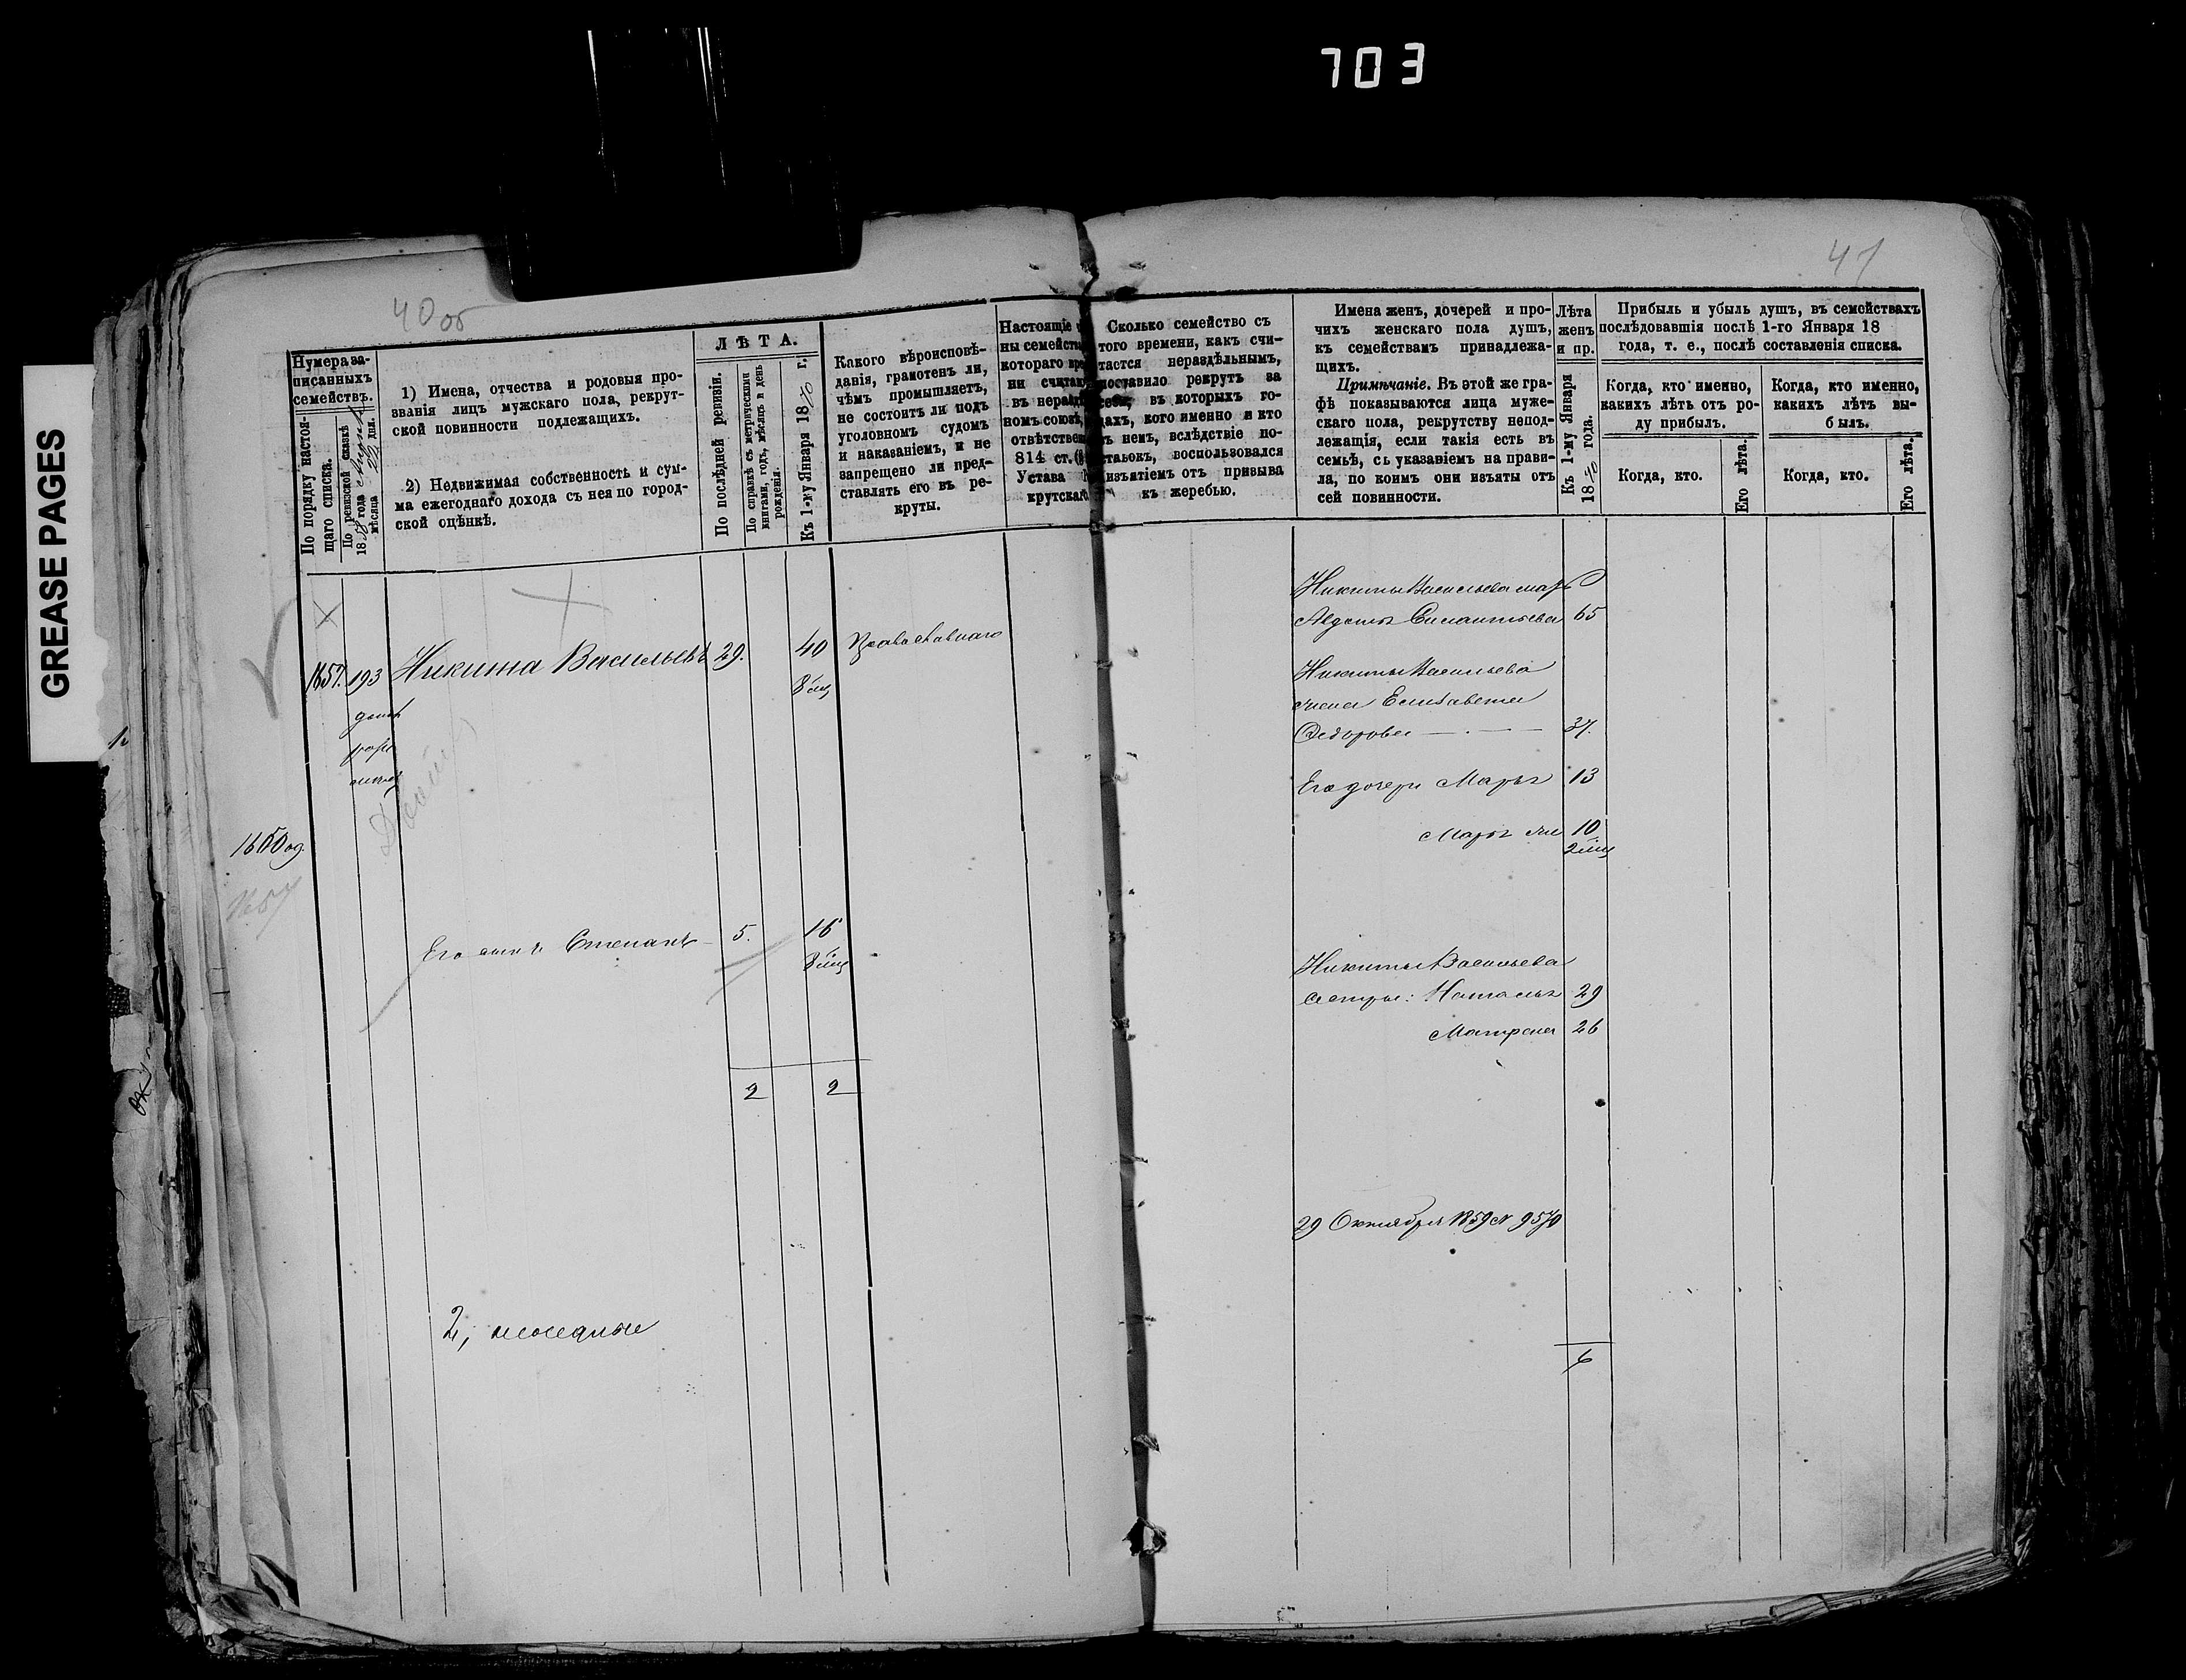 703
GREASE PAGES
40 об
41
Нумера за-
писанныхъ
семействъ.
По порядку настоя-
щаго списка.
По ревизской сказкѣ
18 года
мѣсяца 22 дня.
1) Имена, отчества и родовыя про-
званія лицъ мужскаго пола, рекрут-
ской повинности подлежащихъ.
2) Недвижимая собственность и сум-
ма ежегоднаго дохода съ нея по город-
ской оцѣнкѣ.
ЛѢТА.
По послѣдней ревизіи.
По справкѣ съ метрическими
книгами, годъ, мѣсяцъ и день
рожденія.
Къ 1-му Января 1870 г.
Какого вѣроисповѣ-
данія, грамотенъ ли,
чѣмъ промышляетъ,
не состоитъ ли подъ
уголовномъ судомъ
и наказаніемъ, и не
запрещено ли пред-
ставлять его въ ре-
круты.
Настоящіе
ны семейств
котораго вре
ни считаю
въ нераз
номъ союзѣ,
отвѣтствен
814 ст.
Устава
крутска
Сколько семейство съ
того времени, какъ счи-
тается нераздѣльнымъ,
поставило рекрутъ за
себя, въ которыхъ го-
дахъ, кого именно и кто
въ немъ, вслѣдствіе по-
стаьокъ, воспользовался
изъятіемъ отъ призыва
къ жеребью.
Имена женъ, дочерей и про-
чихъ женскаго пола душъ,
къ семействамъ принадлежа-
щихъ.
Примѣчаніе. Въ этой же гра-
фѣ показываются лица муже-
скаго пола, рекрутству непод-
лежащія, если такія есть въ
семьѣ, съ указаніемъ на прави-
ла, по коимъ они изъяты отъ
сей повинности.
Лѣта
женъ
и пр.
Къ 1-му Января
1870 года.
Прибыль и убыль душъ, въ семействахъ
послѣдовавшія послѣ 1-го Января 18
года, т. е., послѣ составленія списка.
Когда, кто именно,
какихъ лѣтъ отъ ро-
ду прибылъ.
Когда, кто.
Его лѣта.
Когда, кто именно,
какихъ лѣтъ вы-
былъ.
Когда, кто.
Его лѣта.
1657. 193 Никита Васильевъ 29. 40 Православнаго
8 мц
1657
Его сынъ Степанъ 5. 16
8 мц
2 2
Никиты Васильева мать
Авдотья Силантьева 65
Никиты Васильева
жена Елизавета
Федорова — . — 37.
Его дочери Марья 13
Марья же 10
2 мц
Никиты Васильева
сестры: Наталья 29
Матрена 26
29 Октября 1859 № 9570
6